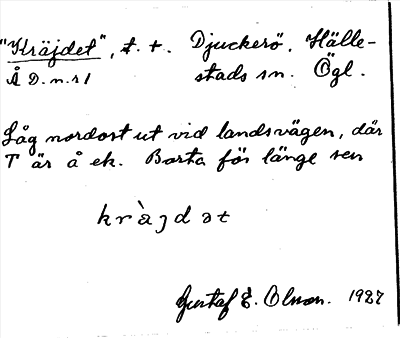 "Kräjdet", t. t. Djuckerö, Hälle-
Å D. n. r 1 stads sn. Ögl.
Låg nordost ut vid landsvägen, där
T är å ek. Borta för länge sen
kràjdət
Gustaf E. Olsson. 1927